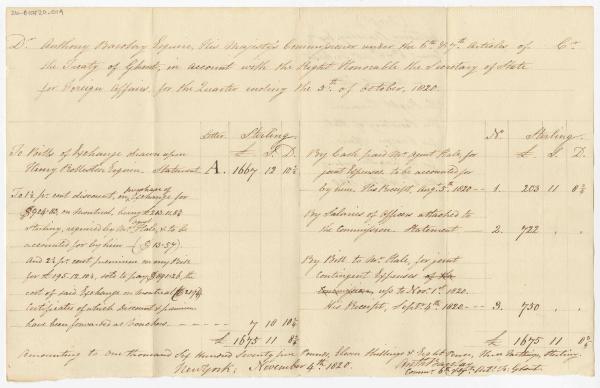 Dr. Anthony Barclay Esquire, His Majesty's Commissioner under the 6th & 7th Articles of Cr.
the Treaty of Ghent, in account with the Right Honorable the Secretary of State
for Foreign Affairs, for the Quarter ending the 5th of October, 1820.
Letter. Sterling.
£ S. D.
To Bills of Exchange drawn upon
Henry Rolleston Esquire. Statement A. 1667 12 10½
To 1½ pr. cent discount, in purchase of Exchange for
on Montreal, being £203.11.8¾
sterling, required by Mr. Hale, & to be
accounted for by him
And 2½ pr. cent premium on my Bill
for £195.12.10½, sold to pay
cost of said Exchange on Montreal
Certificates of which discount & premium
have been forwarded as Vouchers. 7 18 10¼
£ 1675 11 8¾
No. Sterling.
£ S. D.
By Cash paid Mr. Agent Hale, for
joint Expenses to be accounted for
by him. His Receipt, Augt. 5th 1820 1. 203 11 8¾
By Salaries of Officers attached to
the Commission. Statement 2. 722 . .
By Bill to Mr. Hale, for joint
Contingent Expenses of the
Commission, up to Novr. 1st 1820.
His Receipt, Septr. 4th 1820 3. 750 . .
£ 1675 11 8¾
Amounting to one thousand Six Hundred Seventy five Pounds, Eleven Shillings & Eight Pence, Three Farthings, Sterling.
New York, November 4th 1820.
Anth. Barclay